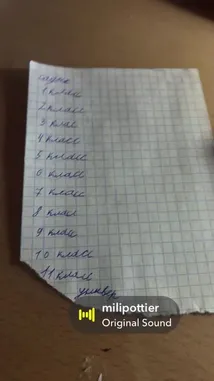 садик
1 класс
2 класс
3 клас
4 класс
5 класс
6 класс
7 класс
8 класс
9 класс
10 класс
11 класс
универ
milipottier
Original Sound